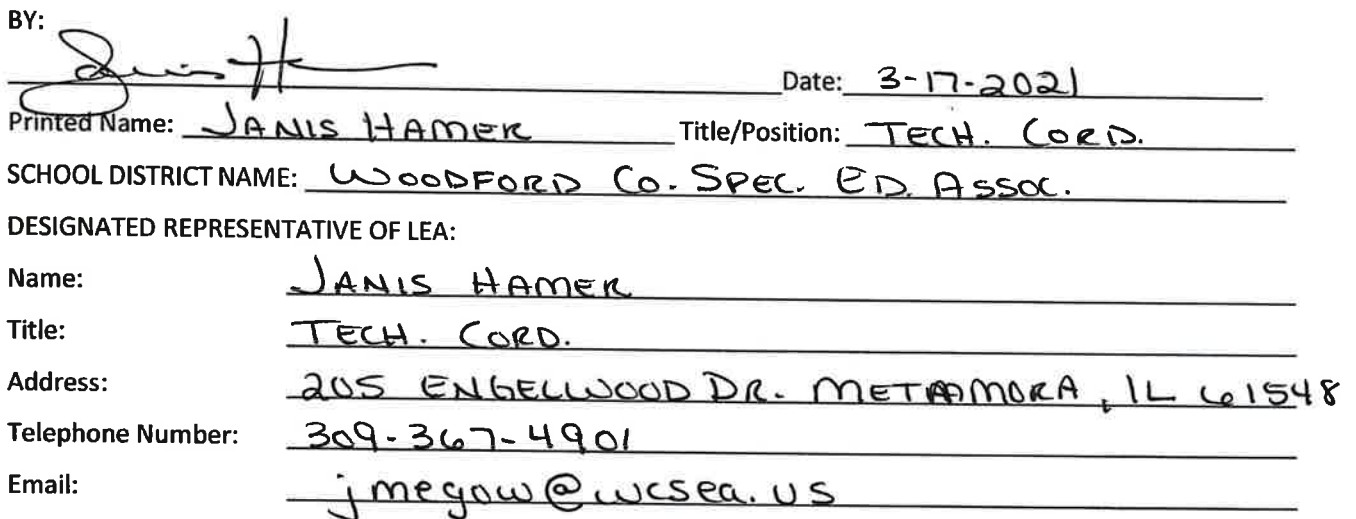 BY:
Janis H Date: 3-17-2021
Printed Name: JANIS HAMER Title/Position: TECH. CORD.
SCHOOL DISTRICT NAME: WOODFORD CO. SPEC. ED. ASSOC.
DESIGNATED REPRESENTATIVE OF LEA:
Name: JANIS HAMER
Title: TECH. CORD.
Address: 205 ENGELWOOD DR. METAMORA, IL 61548
Telephone Number: 309-367-4901
Email: jmegow@wcsea.us